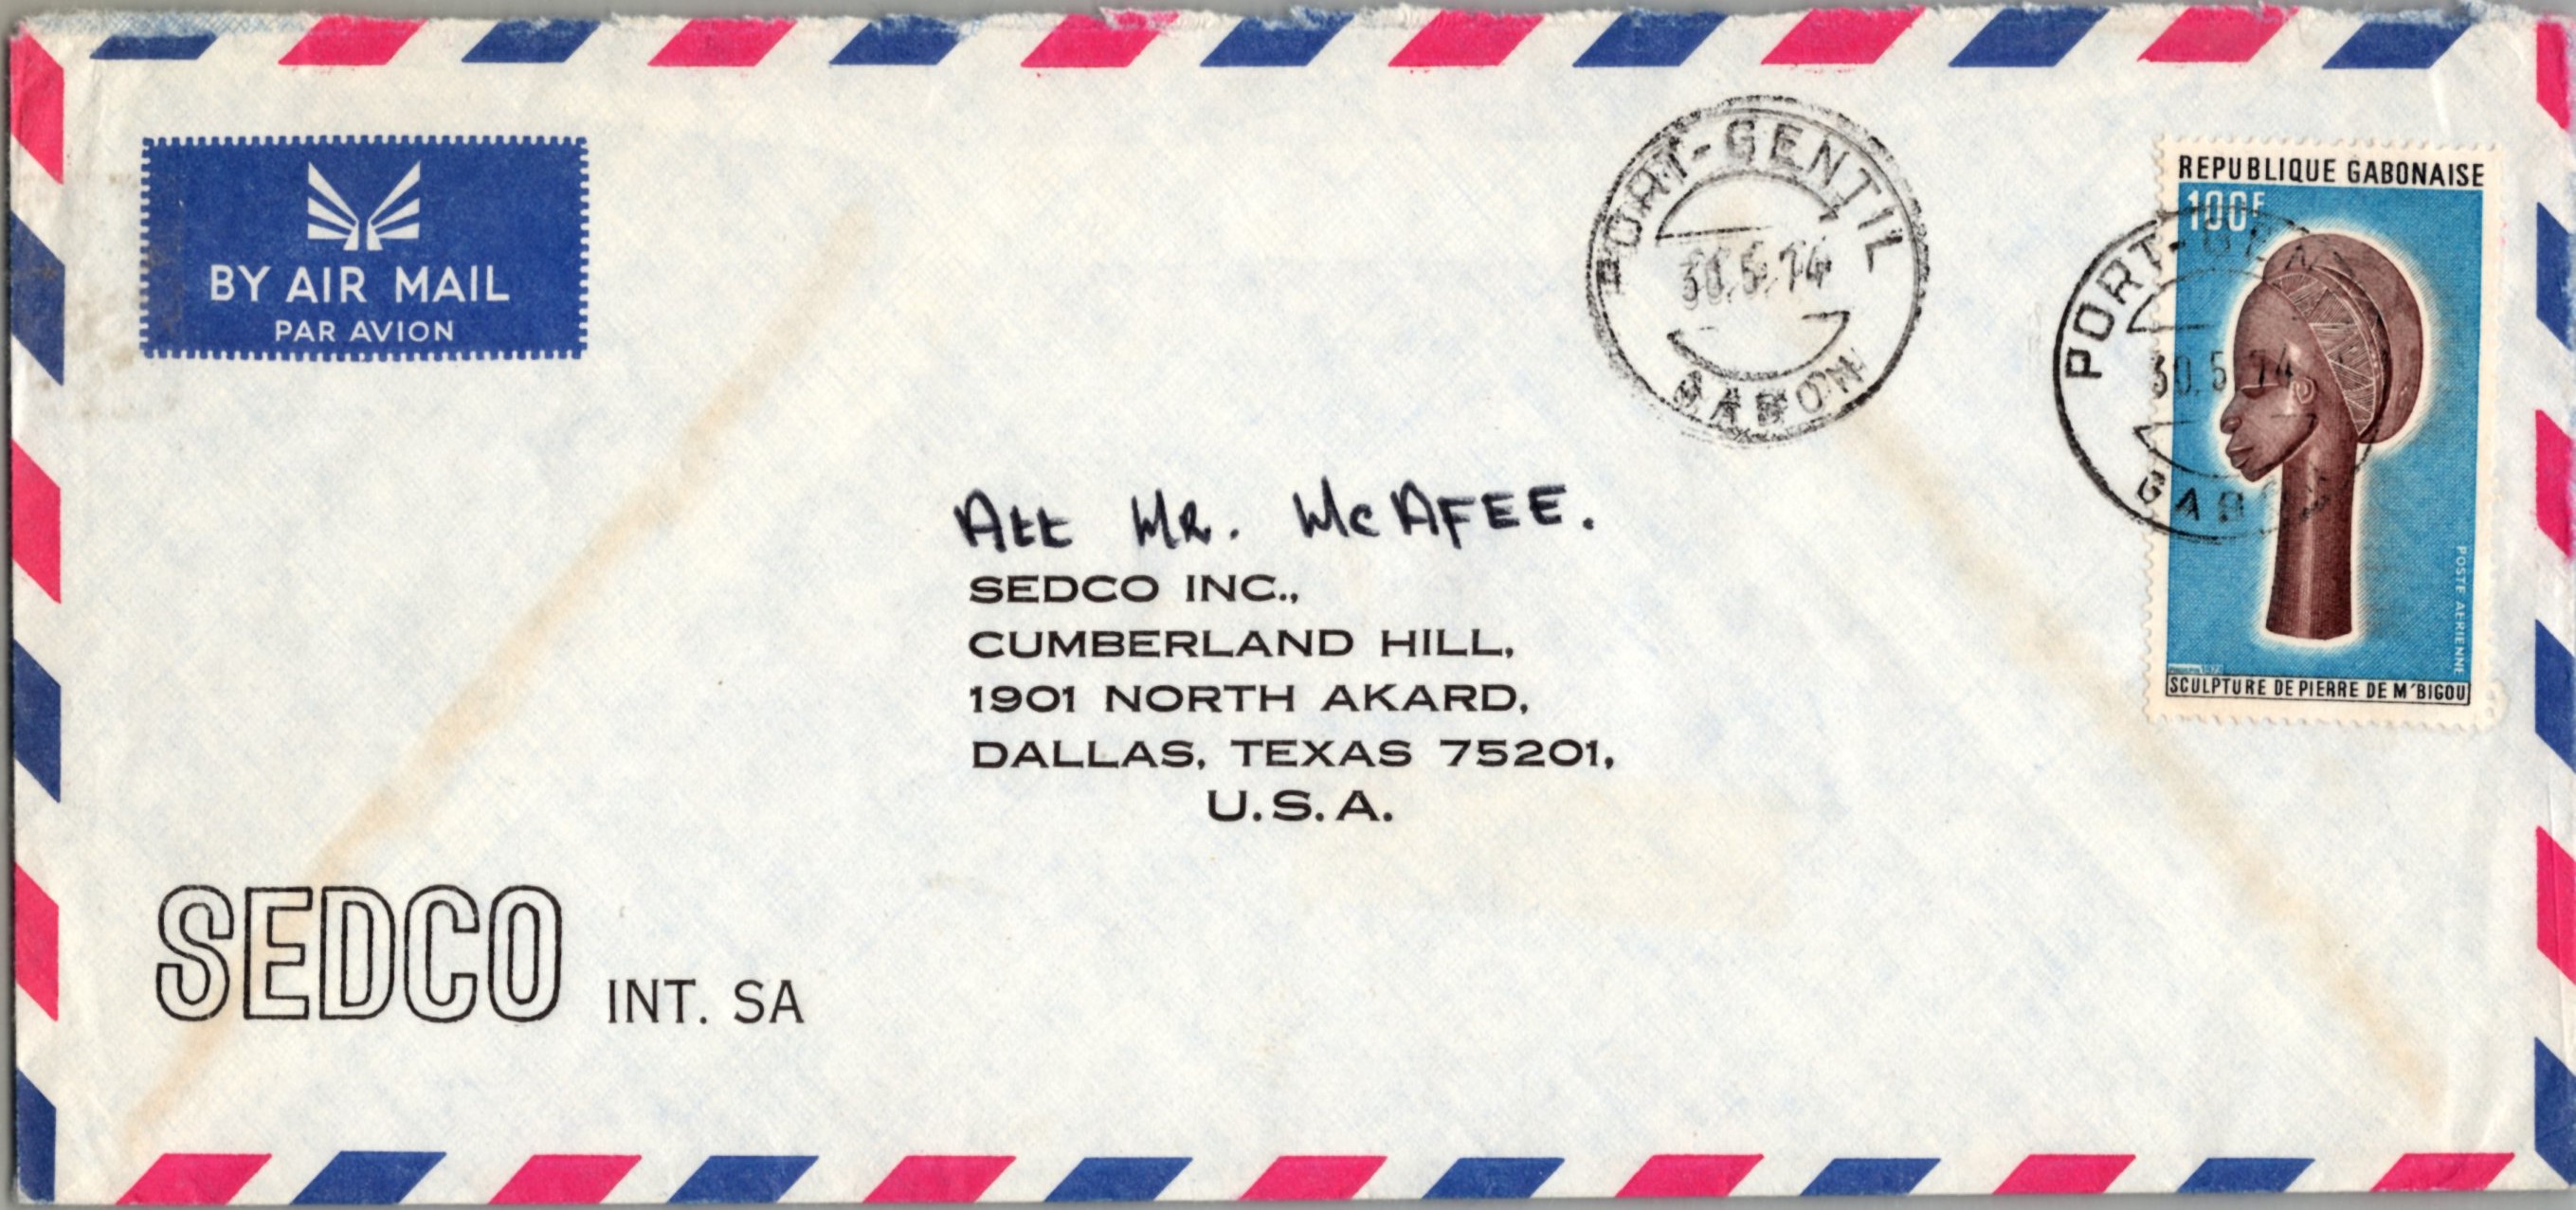 BY AIR MAIL
PAR AVION
PORT-GENTIL
30.5.74
GABON
REPUBLIQUE GABONAISE
100F
PORT-GEN
30.5 74
GABO
POSTE AERIENNE
SCULPTURE DE PIERRE DE M'BIGOU
Att Mr. McAFEE.
SEDCO INC.,
CUMBERLAND HILL,
1901 NORTH AKARD,
DALLAS, TEXAS 75201,
U.S.A.
SEDCO INT. SA